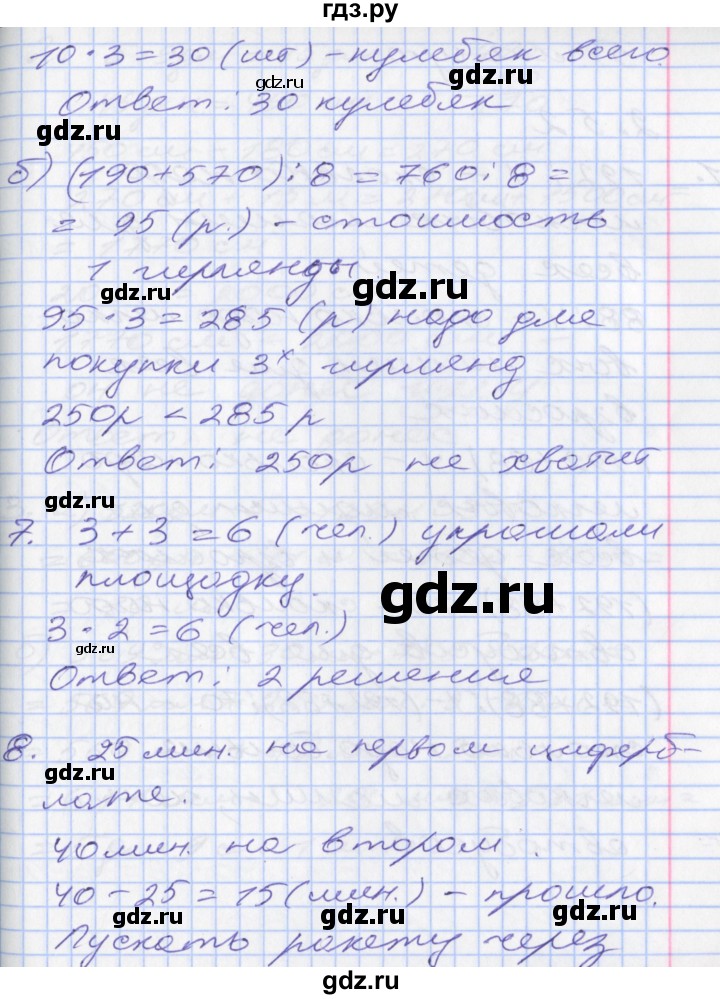 гдз.ру
10 · 3 = 30 (шт) - кулебяк всего.
gdz.ru
gdz.ru
Ответ: 30 кулебяк
gdz.ru
б) (190+570) : 8 = 760 : 8 =
= 95 (р.) - стоимость
gdz.ru
1 гирлянды.
gdz.ru
95 · 3 = 285 (р) надо для
gdz.ru
покупки 3х гирлянд
250р < 285 р
gdz.ru
Ответ: 250р не хватит
gdz.ru
7. 3 + 3 = 6 (чел.) украшали
площадку.
gdz.ru
3 · 2 = 6 (чел.)
gdz.ru
Ответ: 2 решения
8. 25 мин. на первом циферб-
gdz.ru
лате.
40 мин. на втором.
gdz.ru
40 - 25 = 15 (мин.) - прошло.
gdz.ru
gdz.ru
Пускать ракету через
гдз.ру